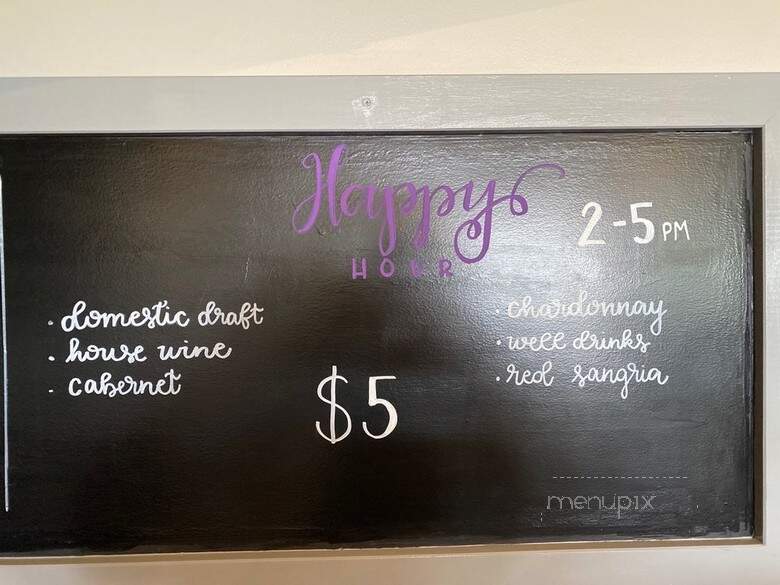 Happy
HOUR
2-5 PM
. domestic draft
. house wine
. cabernet
$5
. chardonnay
. well drinks
. red sangria
menupix